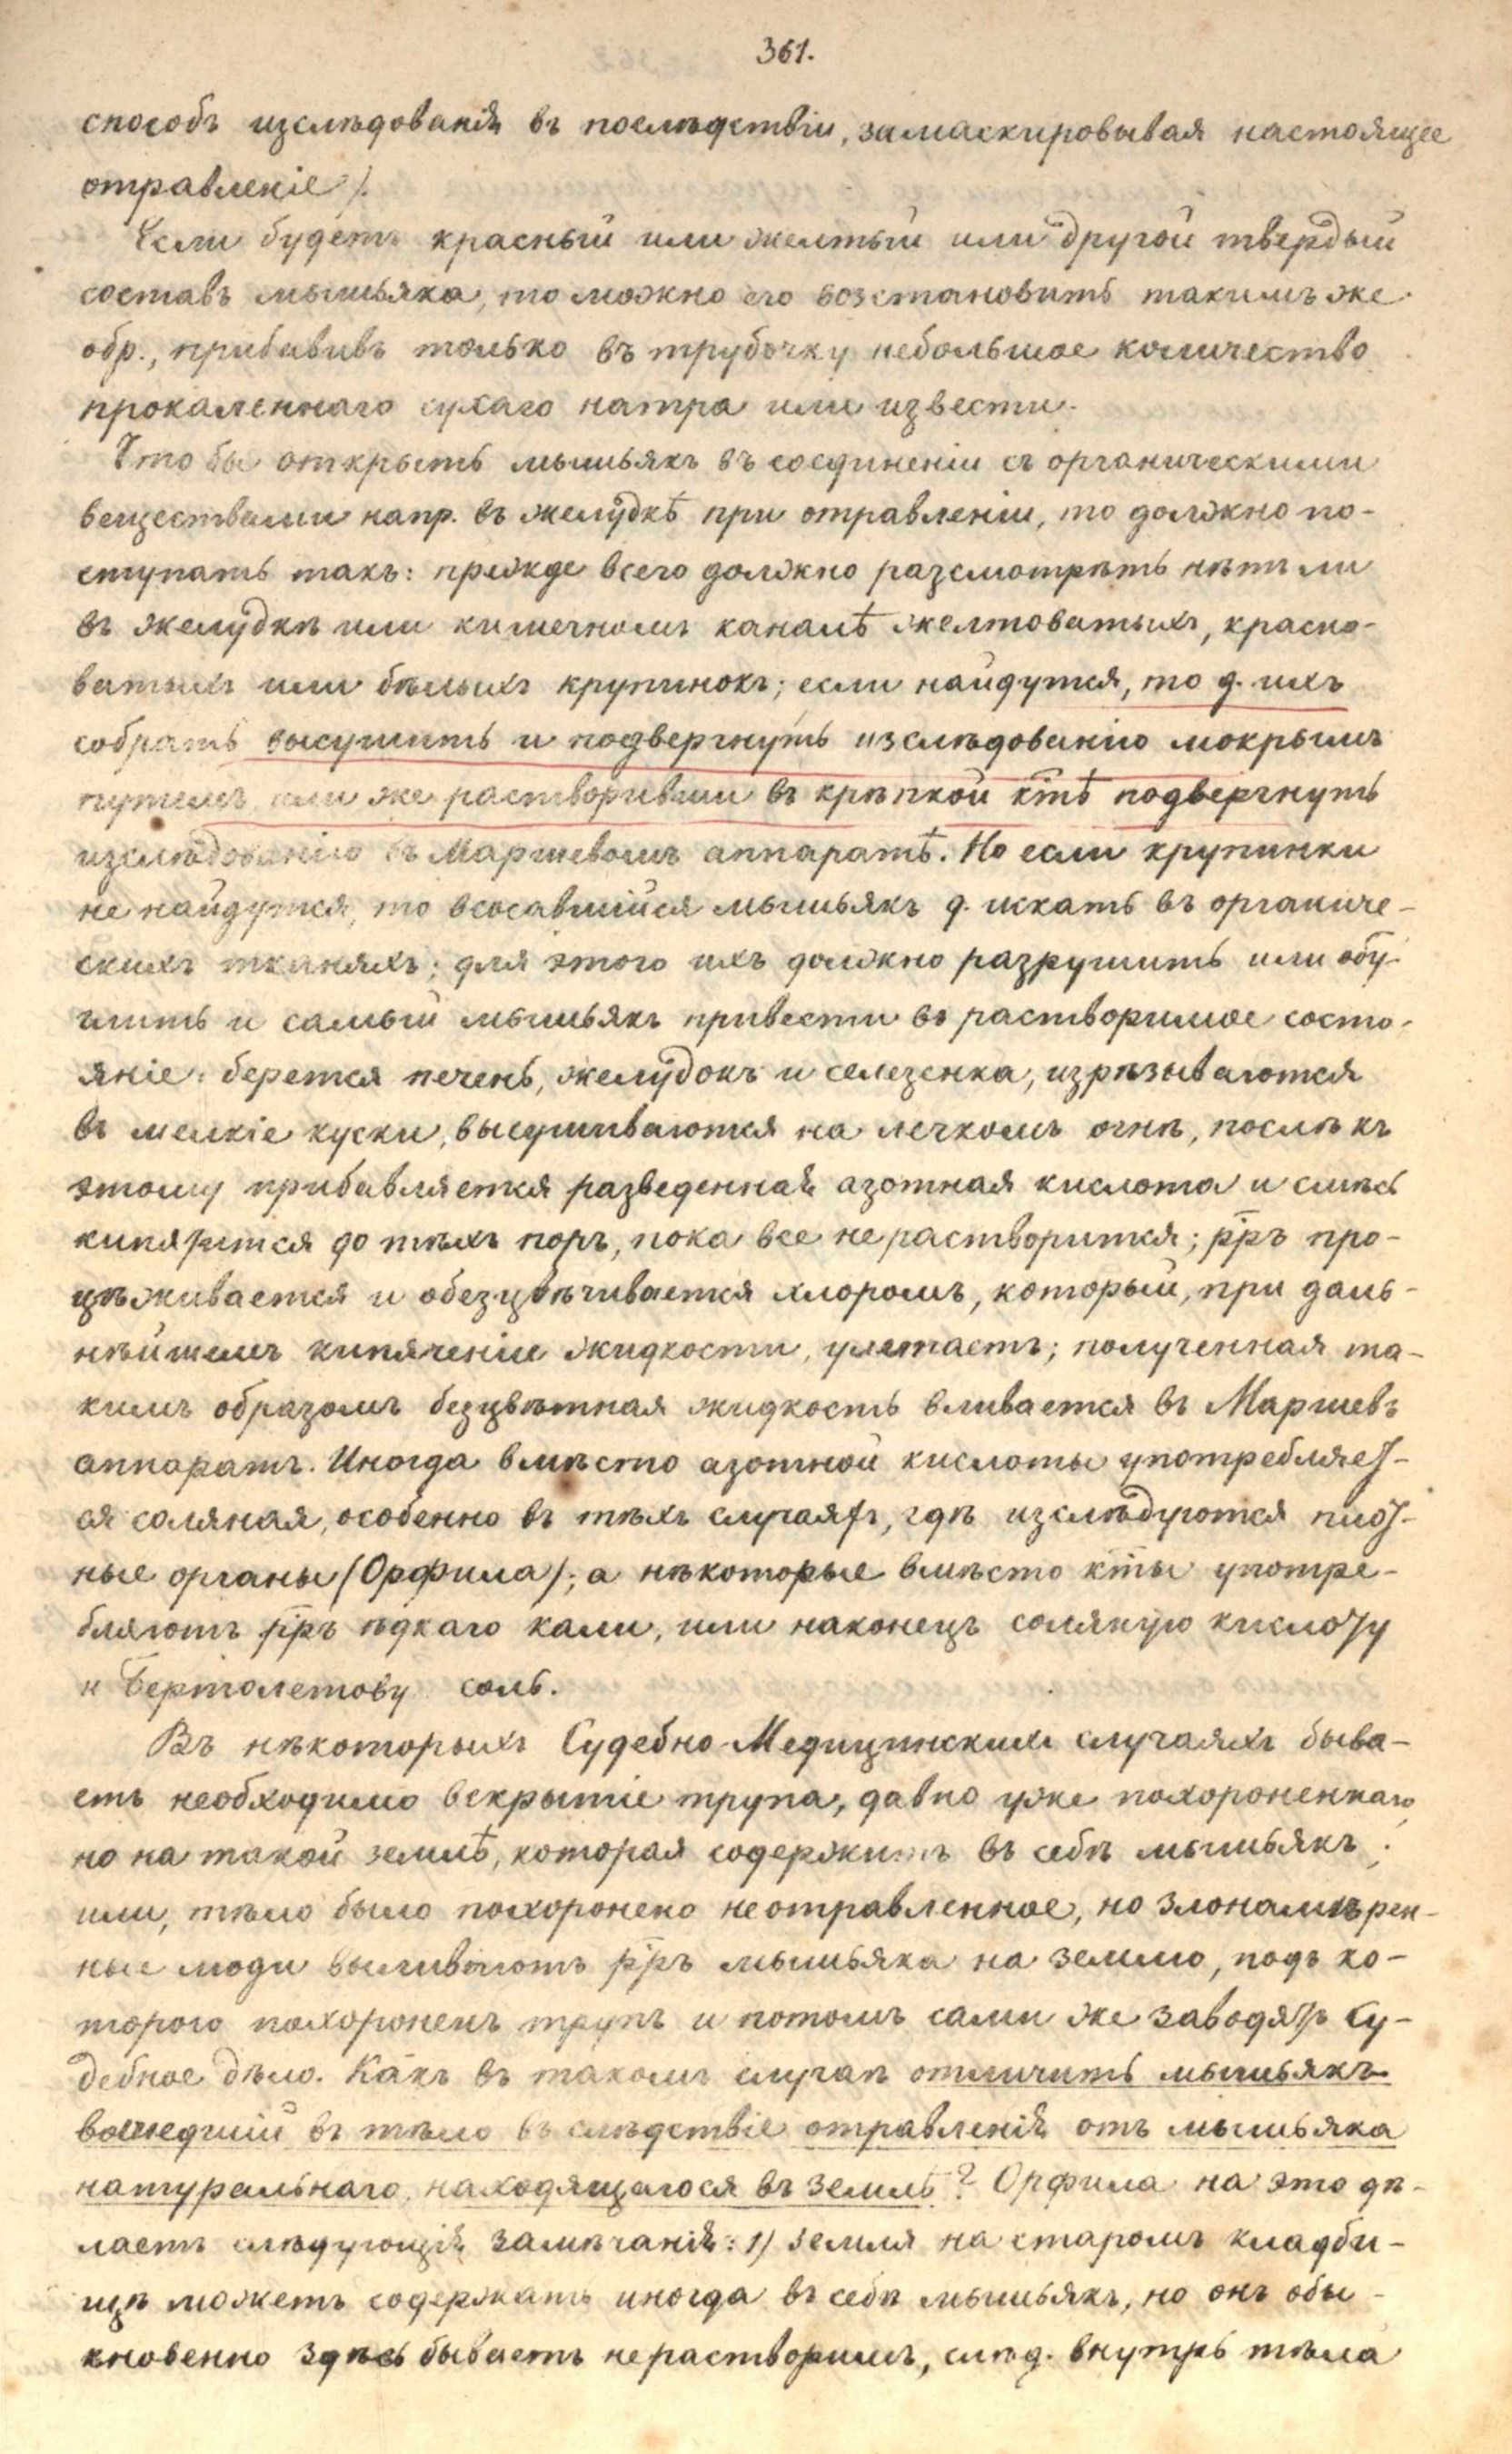 361.
способъ изслѣдованія въ послѣдствіи, замаскировывая настоящее
отравленіе).
Если будетъ красный или желтый или другой твердый
составъ мышьяка, то можно его возстановить такимъ же
обр., прибавивъ только въ трубочку небольшое количество
прокаленнаго сухаго натра или извести.
Что бы открыть мышьякъ въ соединеніи съ органическими
веществами напр. въ желудкѣ при отравленіи, то должно по-
ступать такъ: прежде всего должно разсмотрѣть нѣтъ ли
въ желудкѣ или кишечномъ каналѣ желтоватыхъ, красно-
ватыхъ или бѣлыхъ крупинокъ; если найдутся, то д. ихъ
собрать высушить и подвергнуть изслѣдованію мокрымъ
путемъ или же растворивши въ крѣпкой ктѣ подвергнуть
изслѣдованію въ Маршевомъ аппаратѣ. Но если крупинки
не найдутся, то всосавшійся мышьякъ д. искать въ органиче-
скихъ тканяхъ; для этого ихъ должно разрушить или обу-
глить и самый мышьякъ привести въ растворимое состо-
яніе: берется печень, желудокъ и селезенка, изрѣзываются
въ мелкіе куски, высушиваются на легкомъ огнѣ, послѣ къ
этому прибавляется разведенная азотная кислота и смѣсь
кипятится до тѣхъ поръ, пока все не растворится; рръ про-
цѣживается и обезцвѣчивается хлоромъ, который, при даль-
нѣйшемъ кипяченіи жидкости, улетаетъ; полученная та-
кимъ образомъ безцвѣтная жидкость вливается въ Маршевъ
аппаратъ. Иногда вмѣсто азотной кислоты употребляет-
ся соляная, особенно въ тѣхъ случаяхъ, гдѣ изслѣдуются плот-
ные органы (Орфила); а нѣкоторые вмѣсто кты употре-
бляютъ рръ ѣдкаго кали, или наконецъ соляную кислоту
и Бертолетову соль.
Въ нѣкоторыхъ Судебно-Медицинскихъ случаяхъ быва-
етъ необходимо вскрытіе трупа, давно уже похороненнаго,
но на такой землѣ, которая содержитъ въ себѣ мышьякъ;
или, тѣло было похоронено неотравленное, но злонамѣрен-
ные люди выливаютъ рръ мышьяка на землю, подъ ко-
торого похороненъ трупъ и потомъ сами же заводятъ Су-
дебное дѣло. Какъ въ такомъ случаѣ отличить мышьякъ
вошедшій въ тѣло въ слѣдствіе отравленія отъ мышьяка
натуральнаго, находящагося въ землѣ? Орфила на это дѣ-
лаетъ слѣдующія замѣчанія: 1) земля на старомъ кладби-
щѣ можетъ содержать иногда въ себѣ мышьякъ, но онъ обы-
кновенно здѣсь бываетъ нерастворимъ, слѣд. внутрь тѣла